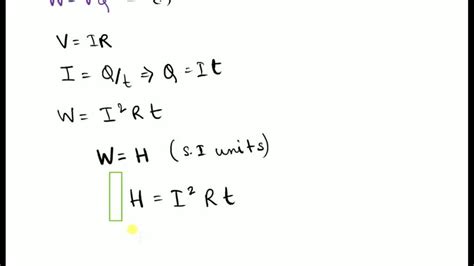 W = VQ
V = IR
I = Q/t => Q = It
W = I² R t
W = H (S.I units)
H = I² R t